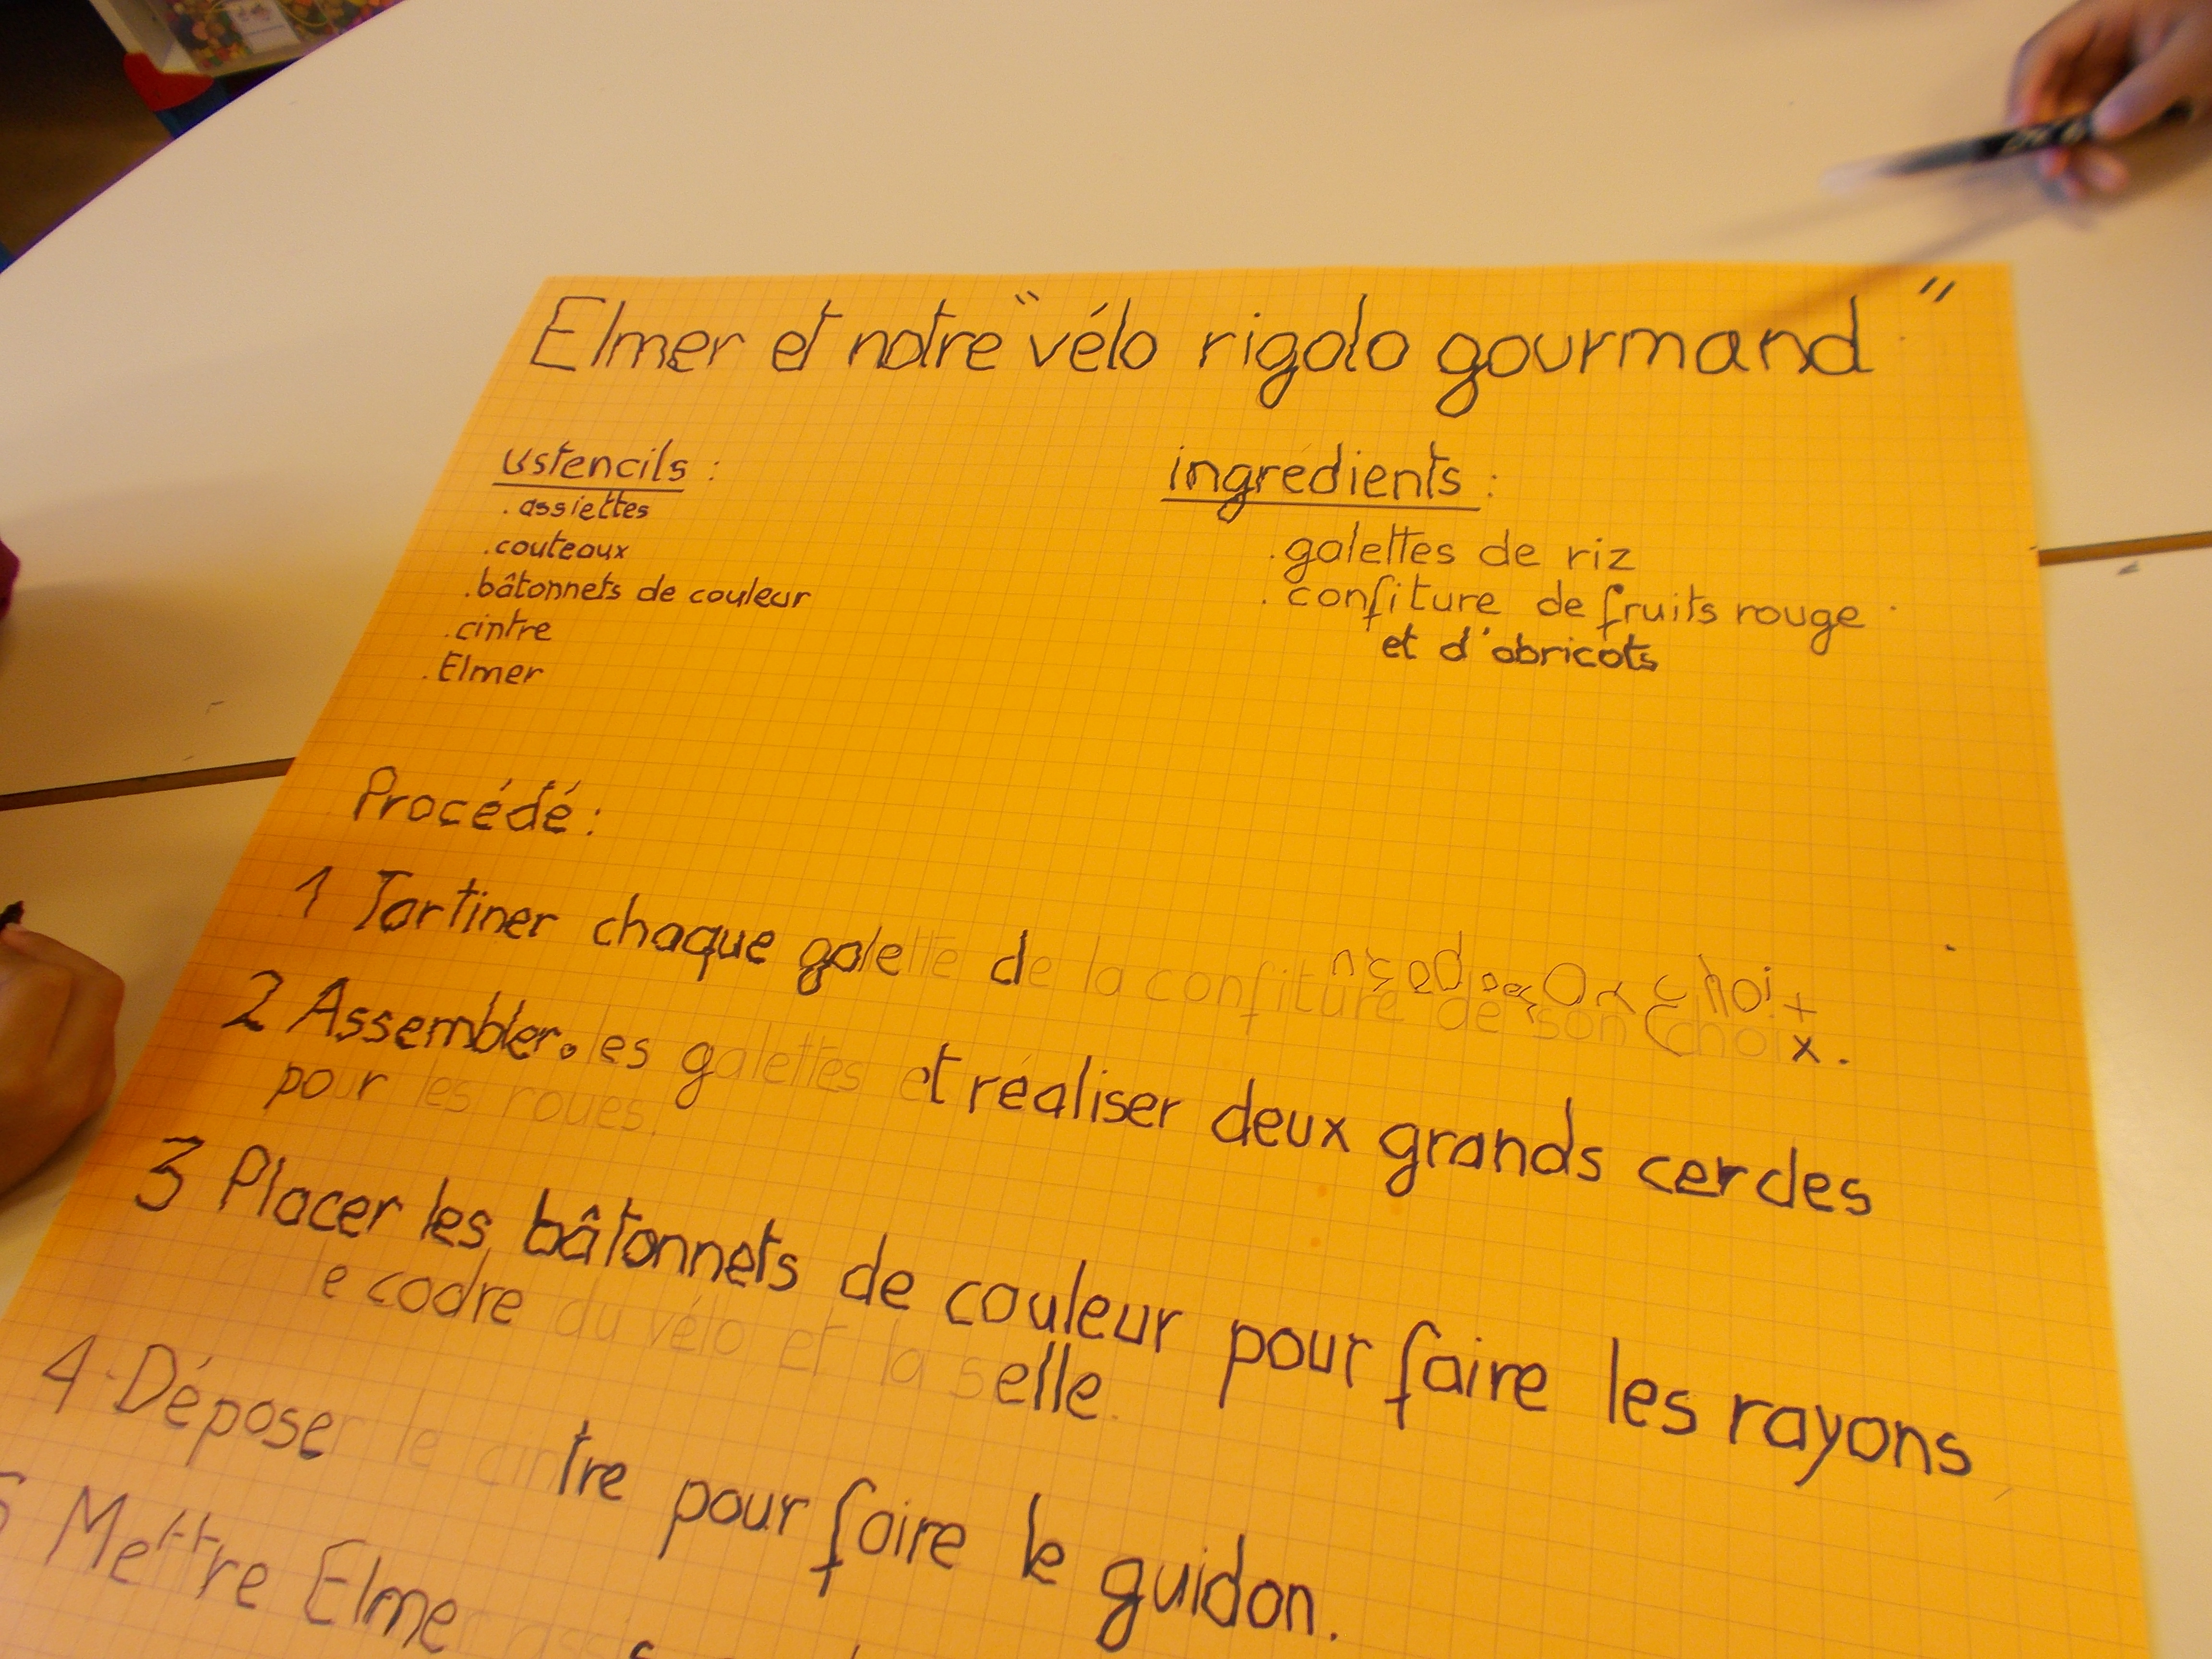 Elmer et notre "vélo rigolo gourmand"
ustencils :
. assiettes
. couteaux
. bâtonnets de couleur
. cintre
. Elmer
ingrédients :
. galettes de riz
. confiture de fruits rouge
et d'abricots
Procédé :
1 Tartiner chaque galette de la confiture de son choix.
2 Assembler les galettes et réaliser deux grands cercles
pour les roues.
3 Placer les bâtonnets de couleur pour faire les rayons,
le cadre du vélo et la selle.
4 Déposer le cintre pour faire le guidon.
5 Mettre Elmer